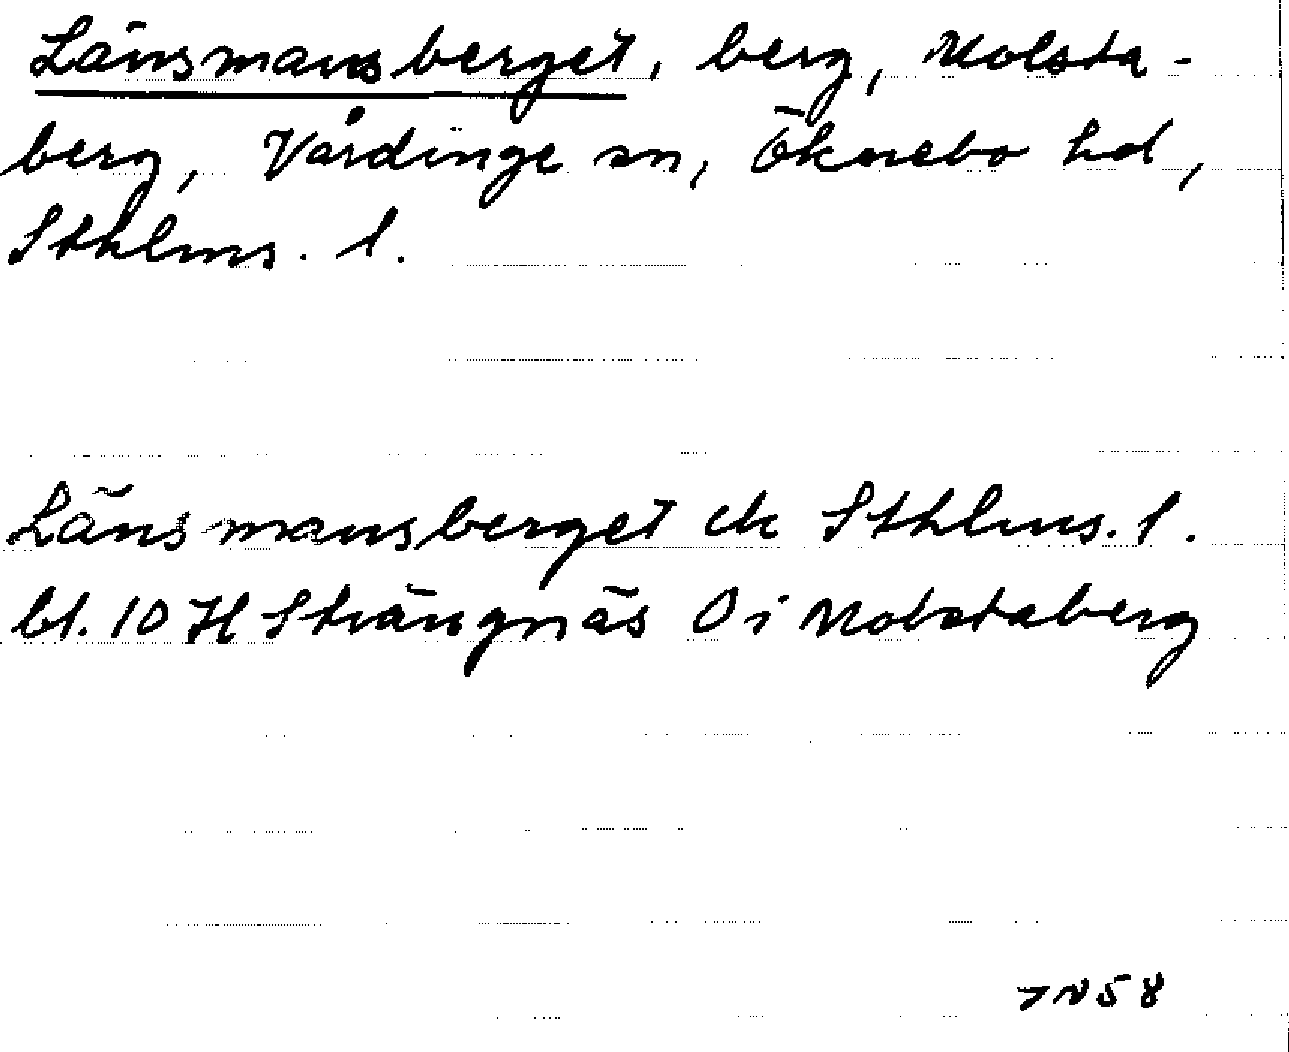 Länsmansberget, berg, Molsta-
berg, Vårdinge sn, Öknebo hd,
Sthlms. l.
Länsmansberget ek Sthlms. l.
bl. 10 H Strängnäs O i Molstaberg